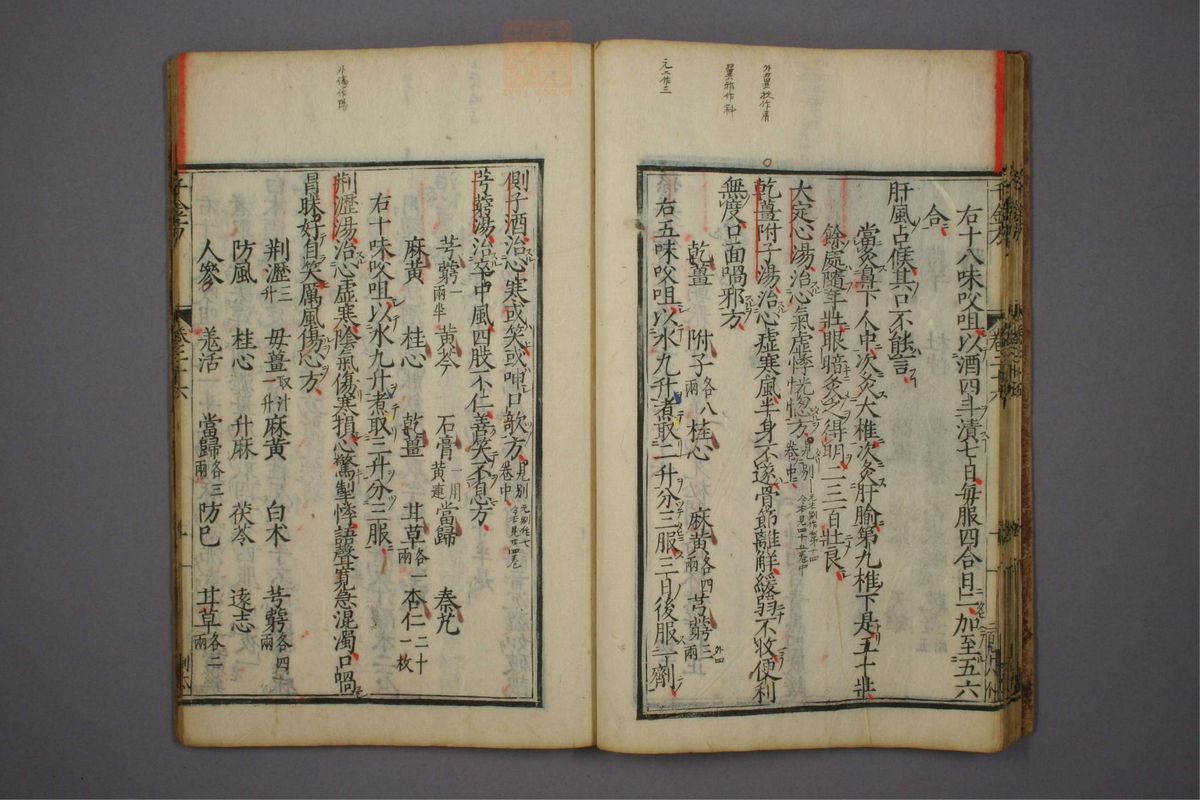 元二作三
翼邪作斜
外臺牧作屑
右十八味㕮咀以酒四斗漬七日每服四合日二加至五六
合
肝風占候其口不能言
當灸鼻下人中次灸大椎次灸肝腧第九椎下是五十壯
餘處隨年壯眼暗灸之得明二三百壯良
大定心湯治心氣虛悸恍惚方見別卷中
乾薑附子湯治心虛寒風半身不遂骨節離解緩弱不收便利
無度口面喎邪方
乾薑 附子各八兩 桂心 麻黃各四兩 芎藭三兩
右五味㕮咀以水九升煮取二升分三服三日後服一劑
外傷作陽
側子酒治心寒或笑或呻口歌方見別卷中
芎藭湯治卒中風四肢不仁善笑不息方
芎藭一兩半 黃芩 石膏一用黃連 當歸 秦艽
麻黃 桂心 乾薑 甘草各一兩 杏仁二十一枚
右十味㕮咀以水九升煮取三升分三服
荆瀝湯治心虛寒陰氣傷寒損心驚掣悸語聲寬急混濁口喎
冒昧好自笑厲風傷心方
荆瀝三升 母薑取汁一升 麻黃 白朮 芎藭各四兩
防風 桂心 升麻 茯苓 遠志
人參 羌活 當歸各三兩 防巳 甘草各二兩